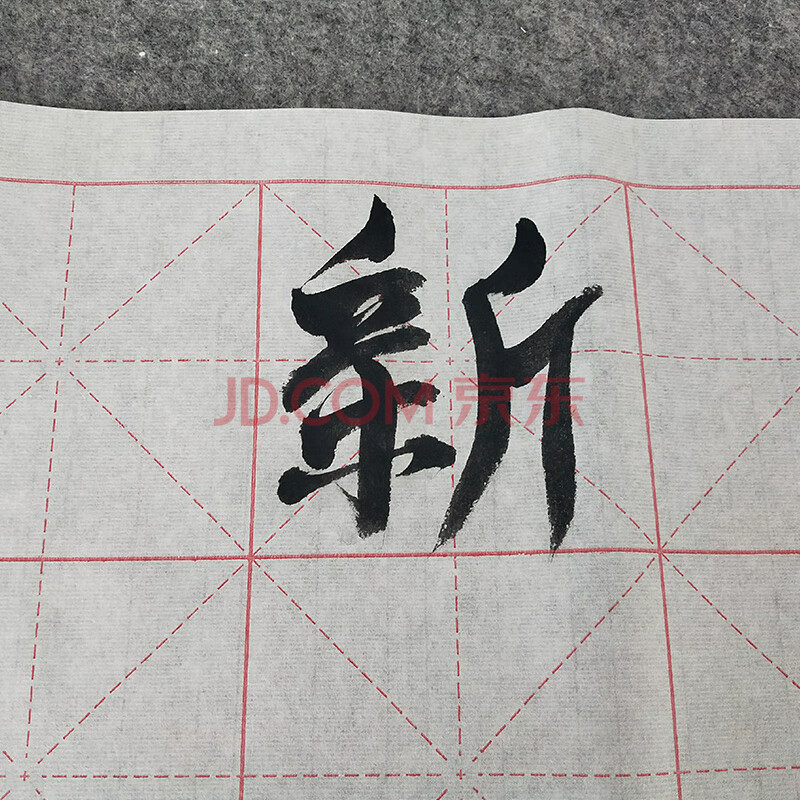 新
JD.COM 京东